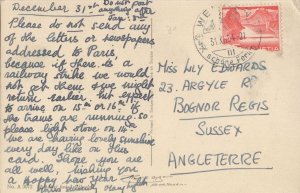 December 31st Do not post
anything after
Jan. 8th
Please do not send any
of the letters or newspapers
addressed to Paris
because if there is a
railway strike we would
not get them & we might
return earlier. But expect
to arrive on 15th or 16th if
the trains are running so
please light stove on 14th
We are having lovely sunshine
every day like on this
card. Hope you are
all well, wishing you
a happy new year with
HELVETIA
Miss Lily Edwards
23. Argyle Rd
Bognor Regis
Sussex
Angleterre